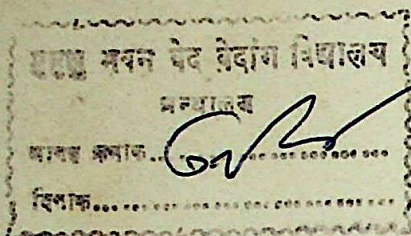 मुमुक्षु भवन वेद वेदांग विद्यालय
ग्रन्थालय
आगत क्रमांक..................
दिनांक..................